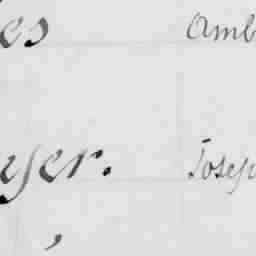 es Amb
yer. Josep